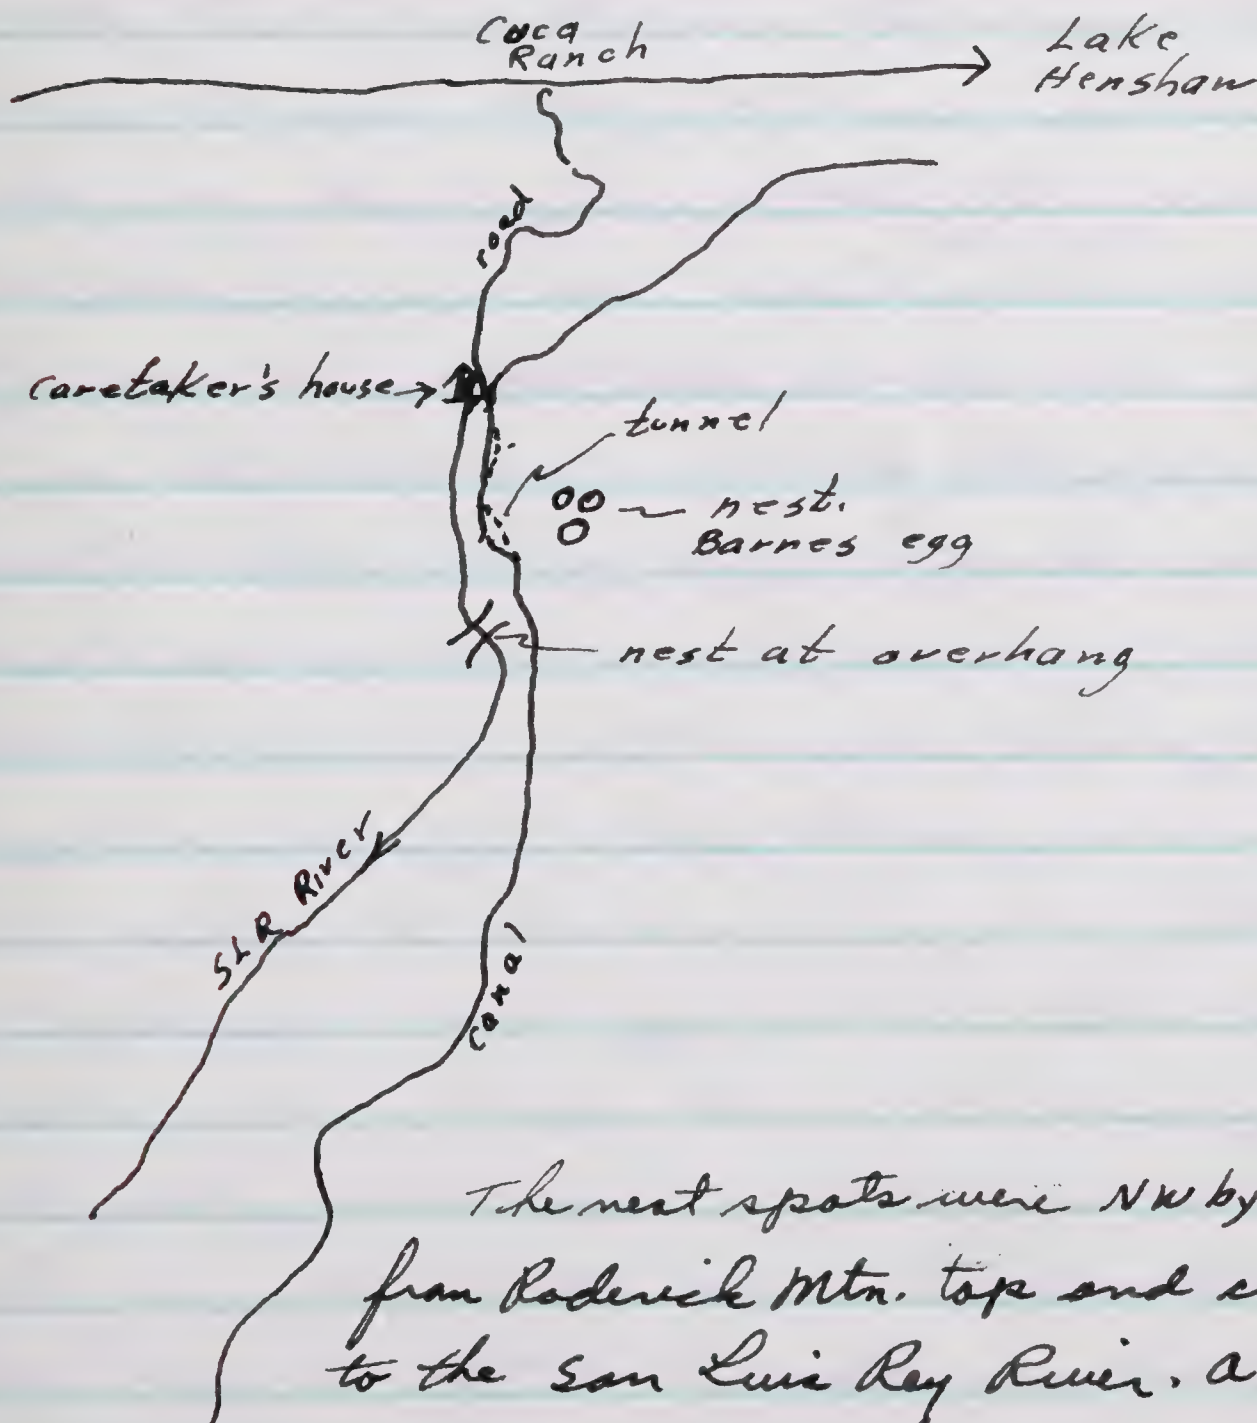 Cuca
Ranch
Lake
Henshaw
road
caretaker's house
tunnel
nest.
Barnes egg
nest at overhang
SLR River
canal
The nest spots were NW by
from Roderick Mtn. top and c
to the San Luis Rey River. A